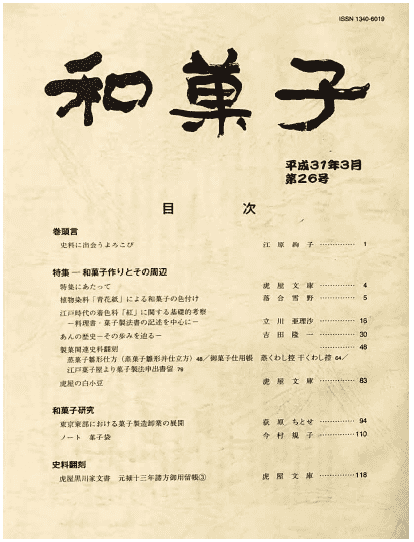 ISSN 1340-6019
和菓子
平成31年3月
第26号
目 次
巻頭言
史料に出会うよろこび 江原絢子 ………… 1
特集 ― 和菓子作りとその周辺
特集にあたって 虎屋文庫 ………… 4
植物染料「青花紙」による和菓子の色付け 落合雪野 ………… 5
江戸時代の着色料「紅」に関する基礎的考察
－料理書・菓子製法書の記述を中心に－ 立川亜理沙 ………… 16
あんの歴史－その歩みを辿る－ 吉田隆一 ………… 30
製菓関連史料翻刻 ………… 48
蒸菓子雛形仕方(蒸菓子雛形并仕立方)48／御菓子仕用帳 蒸くわし控 干くわし控 64／
江戸菓子屋より菓子製法申出書留 76
虎屋の白小豆 虎屋文庫 ………… 83
和菓子研究
東京東部における菓子製造卸業の展開 荻原ちとせ ………… 94
ノート 菓子袋 今村規子 ………… 110
史料翻刻
虎屋黒川家文書 元禄十三年諸方御用留帳③ 虎屋文庫 ………… 118